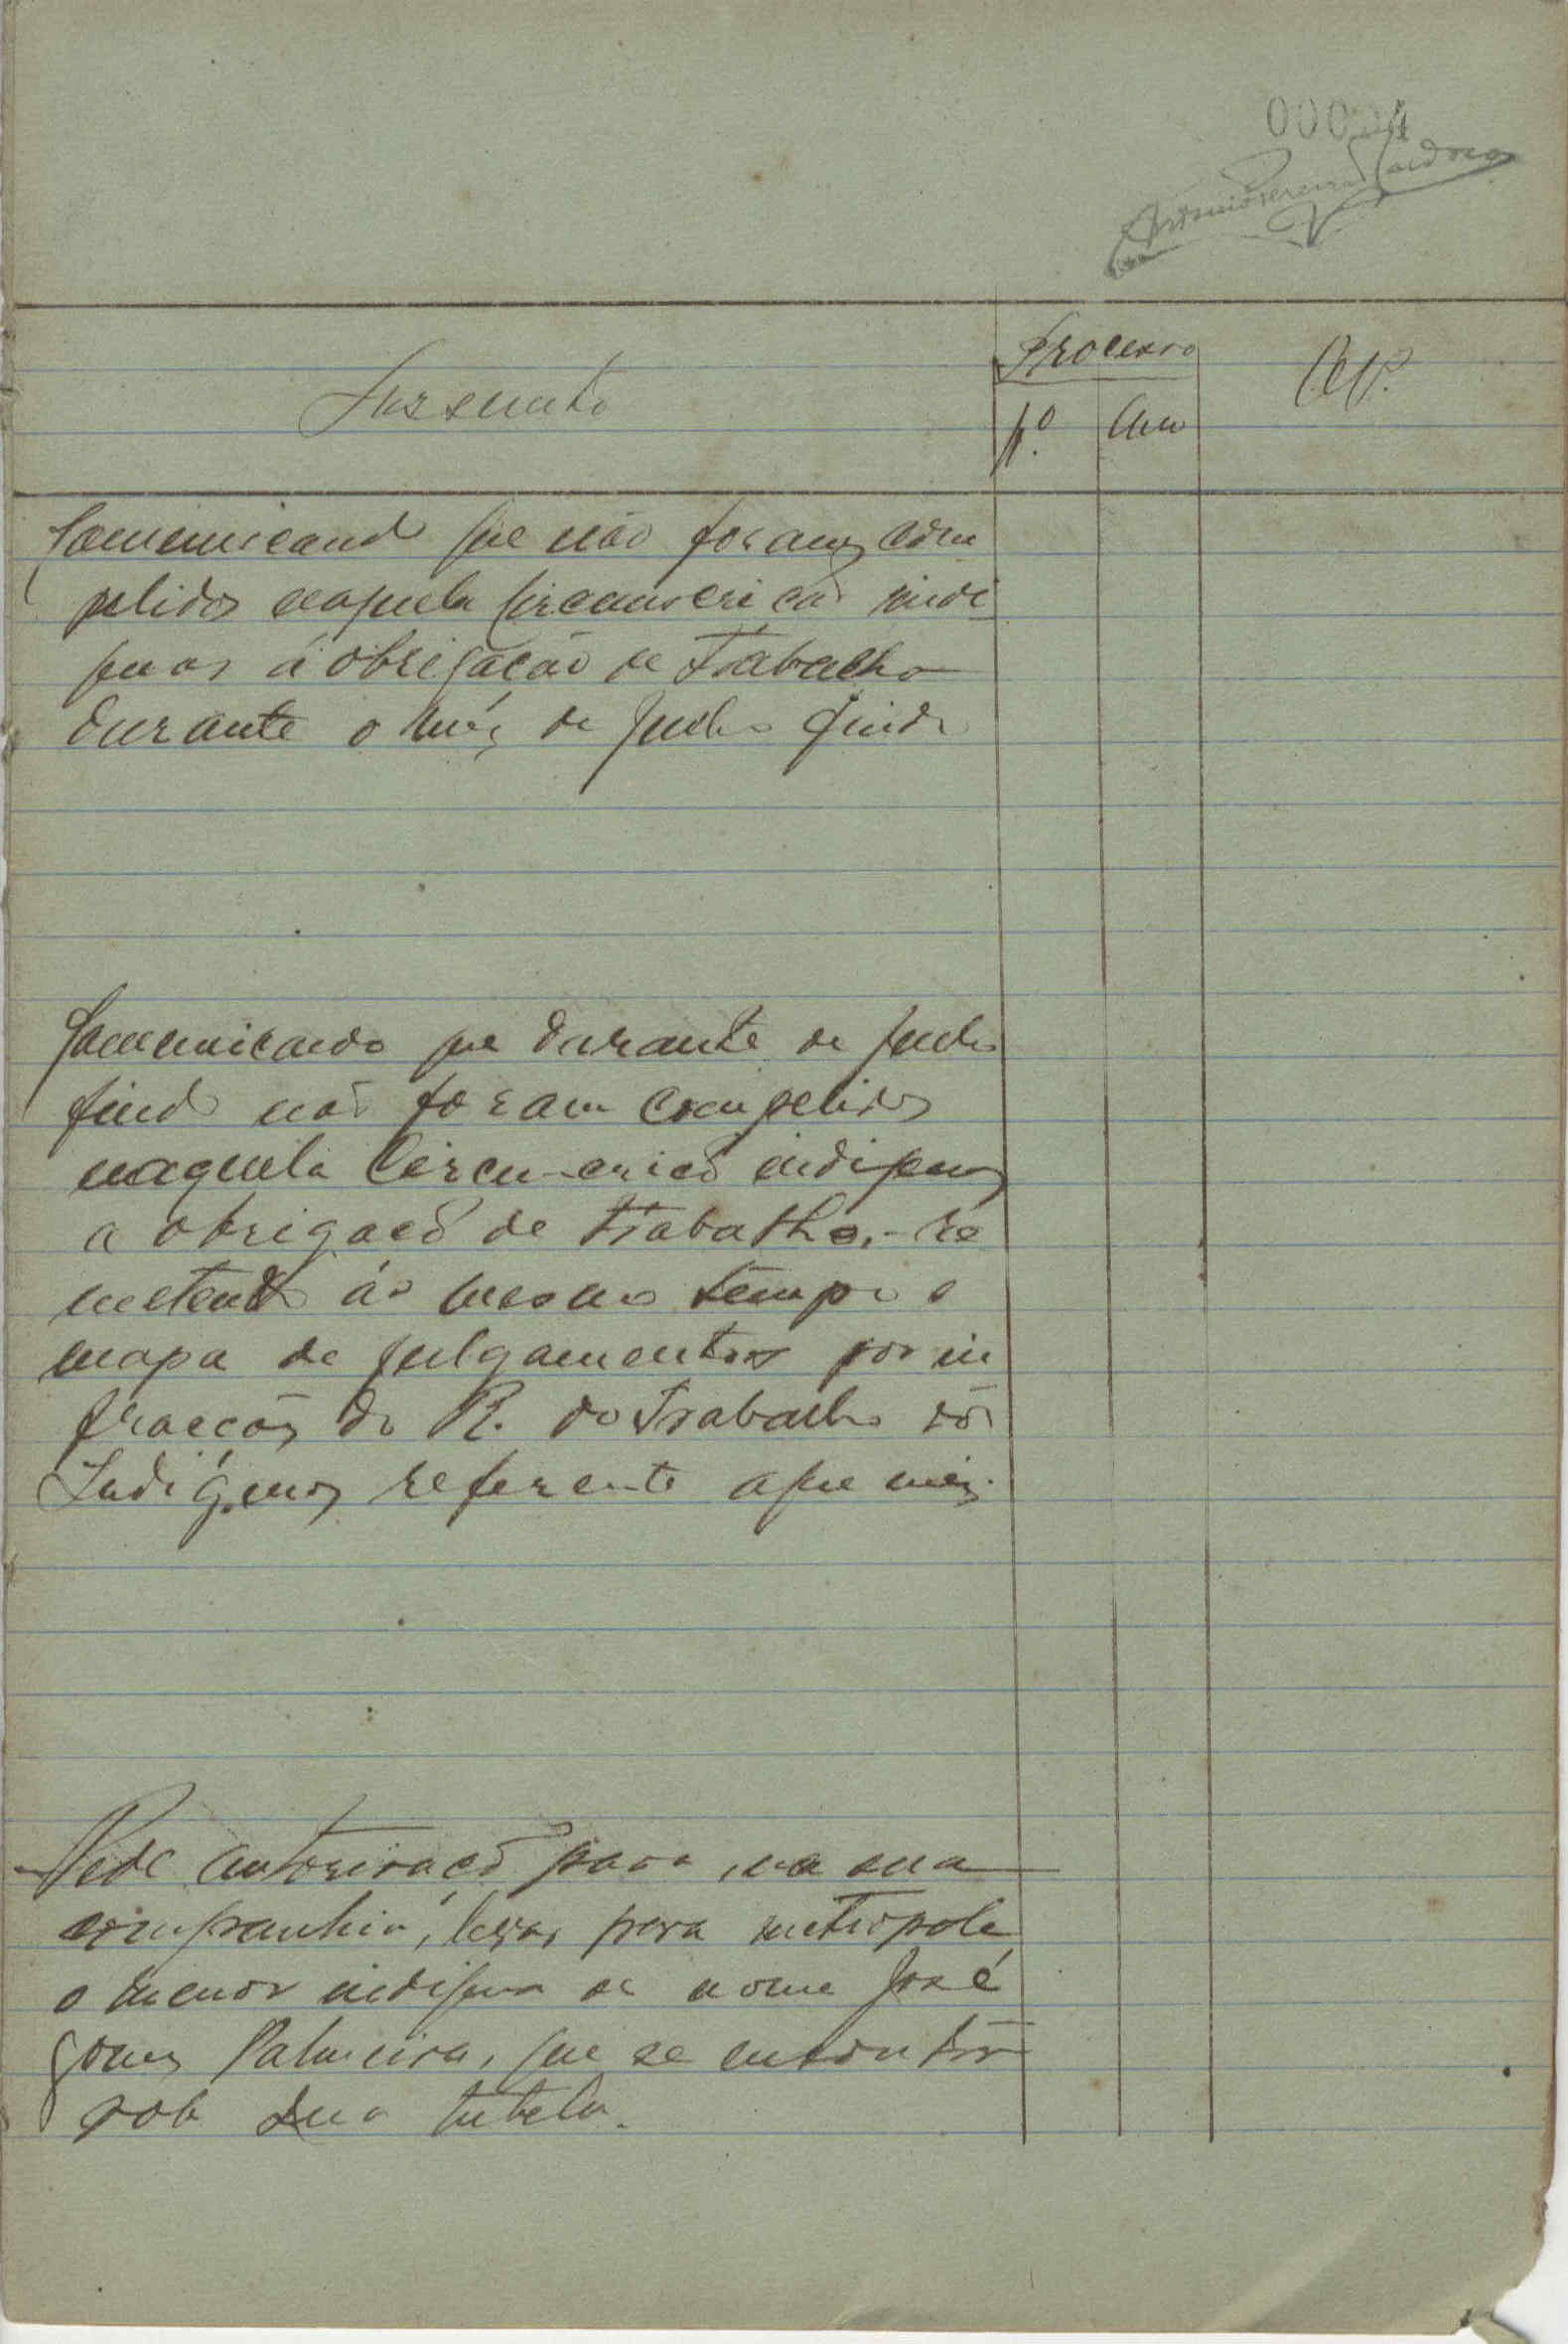 Antonio Pereira Cardoso
Processo
Assunto
Nº Ano
Comunicando que não foram com
pelidos naquela circunscrição indí
genas á obrigação de trabalho
durante o mês de Julho findo
Comunicando que durante de Julho
findo não foram compelidos
naquela Circunscrição indigenas
a obrigação de trabalho, - re
metendo ao mesmo tempo o
mapa de julgamentos por in
fracções do R. do Trabalho dos
Indigenas referente aque mês.
Pede autorização para, na sua
companhia, levar para metropole
o menor indigena de nome José
Gomes Palmeira, que se encontra
sob sua tutela.